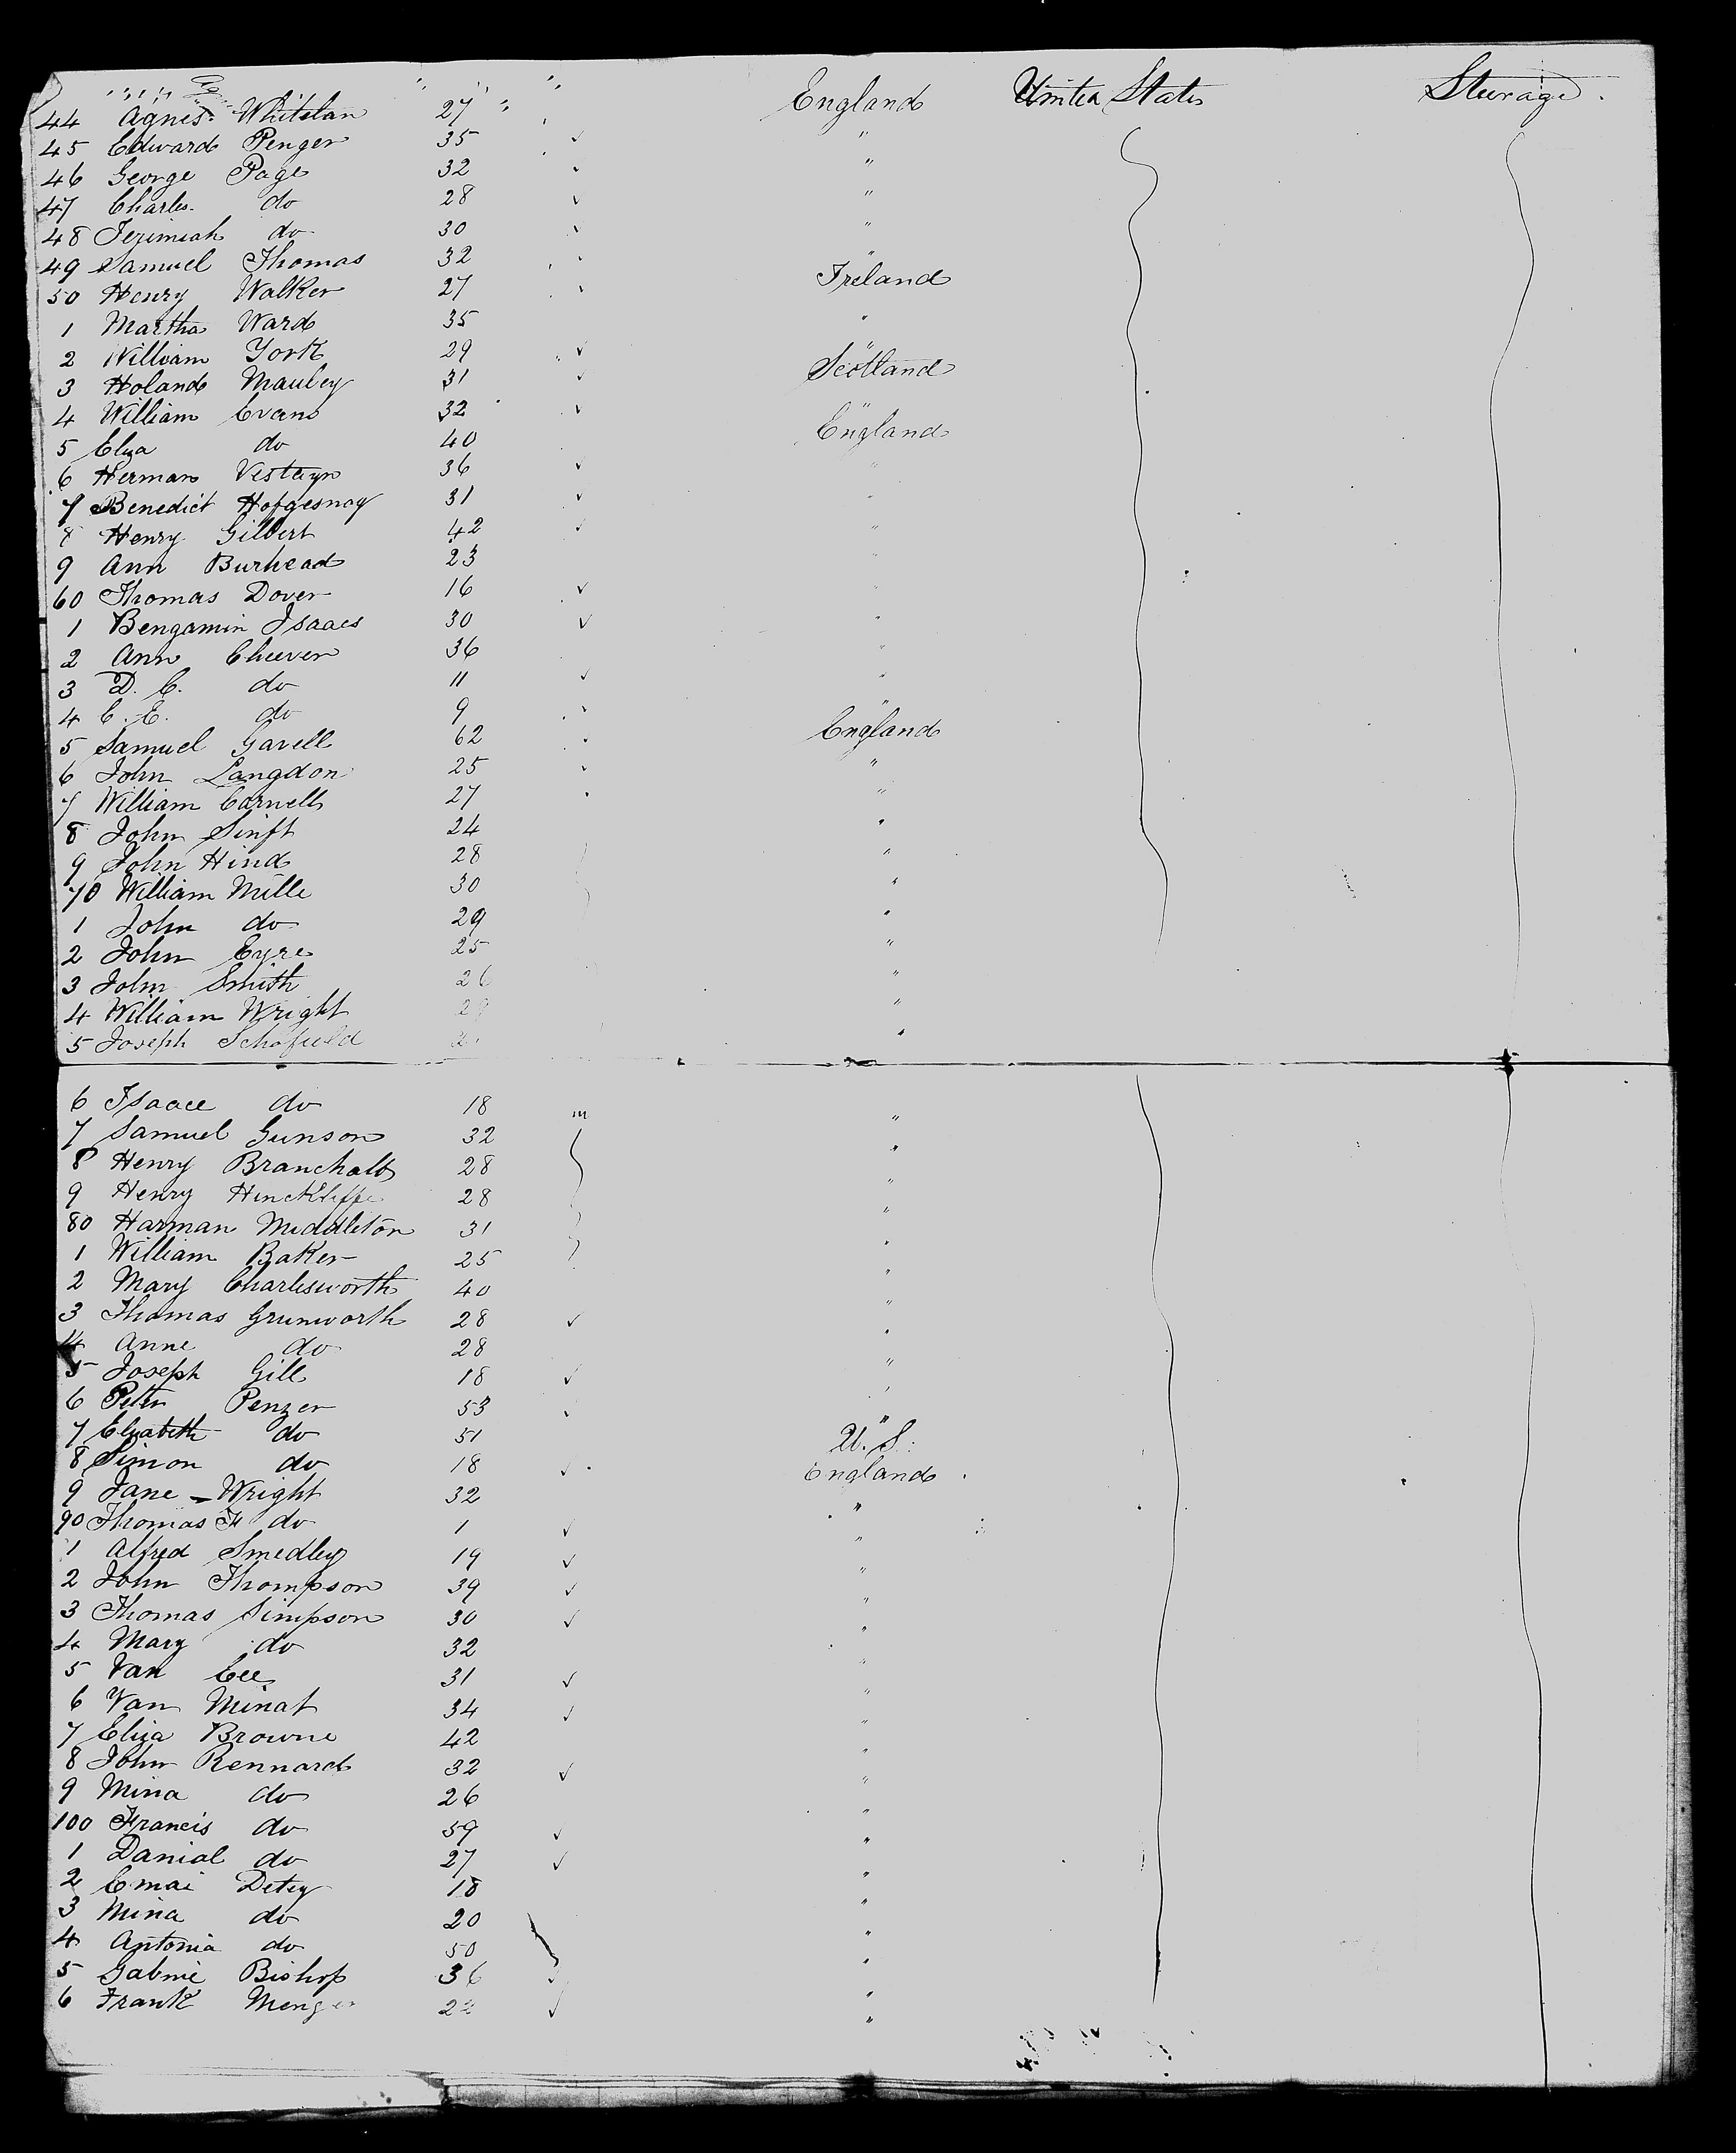 44 Agnes Whitelan 27 " England United States Steerage.
45 Edward Penger 35 "
46 George Page 32 "
47 Charles do 28 "
48 Jerimiah do 30 "
49 Samuel Thomas 32 "
50 Henry Walker 27 Ireland
1 Martha Ward 35 "
2 William York 29 "
3 Holand Mauley 31 Scotland
4 William Evans 32 "
5 Elza do 40 England
6 Herman Vesteyn 36 "
7 Benedict Hofgesnag 31 "
8 Henry Gilbert 42 "
9 Ann Burhead 23 "
60 Thomas Dover 16 "
1 Bengamin Isaacs 30 "
2 Ann Cheever 36 "
3 D. C. do 11 "
4 C. E. do 9 "
5 Samuel Gavell 62 England
6 John Langdon 25 "
7 William Carnell 27 "
8 John Sinft 24 "
9 John Hind 28 "
70 William Mille 30 "
1 John do 29 "
2 John Eyre 25 "
3 John Smith 26 "
4 William Wright 29 "
5 Joseph Schofield "
6 Isaac do 18 "
7 Samuel Gunson 32 "
8 Henry Branchalt 28 "
9 Henry Hinckliffe 28 "
80 Harman Middleton 31 "
1 William Baker 25 "
2 Mary Charlesworth 40 "
3 Thomas Grunworth 28 "
4 Anne do 28 "
5 Joseph Gill 18 "
6 Peter Penzer 53 "
7 Elyabeth do 51 "
8 Simon do 18 U.S.
9 Jane Wright 32 England
90 Thomas F do 1 "
1 Alfred Smedley 19 "
2 John Thompson 39 "
3 Thomas Simpson 30 "
4 Mary do 32 "
5 Van Cee 31 "
6 Van Minat 34 "
7 Eliza Browne 42 "
8 John Rennard 32 "
9 Mina do 26 "
100 Francis do 59 "
1 Danial do 27 "
2 Emai Detey 18 "
3 Mina do 20 "
4 Antonia do 50 "
5 Gabrie Bishop 36 "
6 Frank Menger 22 "